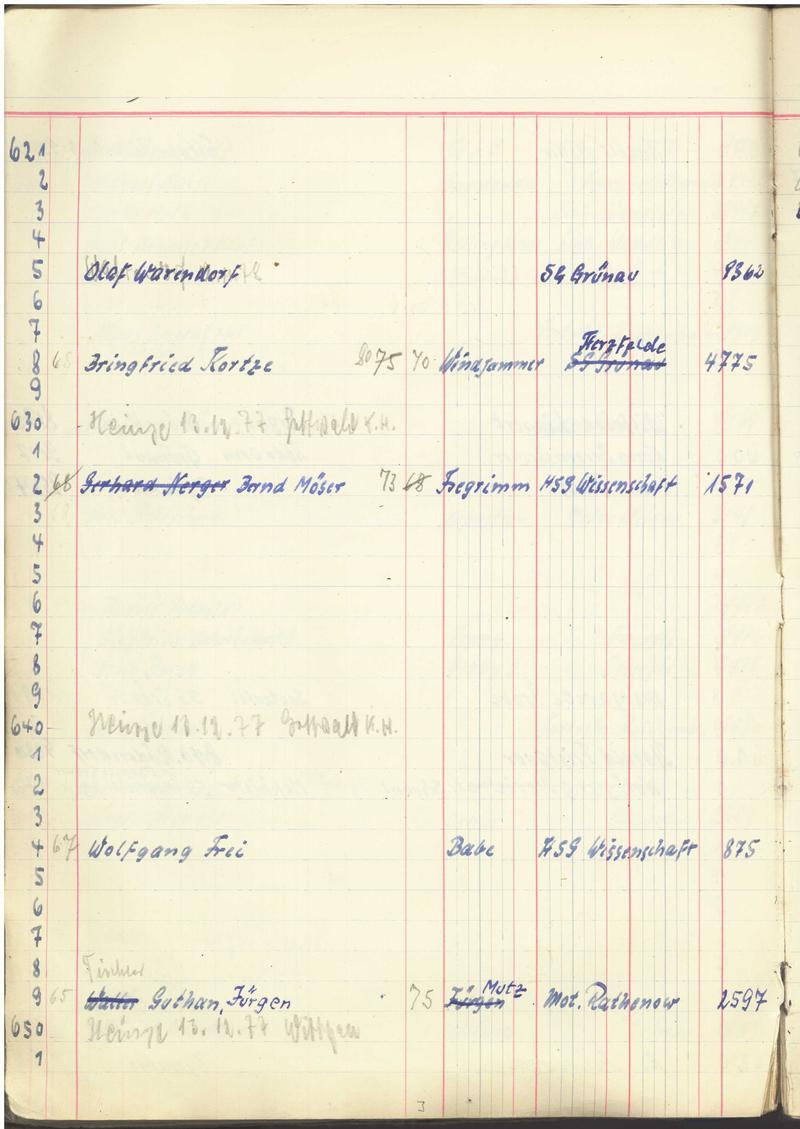 621
2
3
4
5 Olaf Warendorf SG Grünau 8362
6
7
Herzfelde
8 68 Bringfried Kortze 80 75 70 Windjammer SG Grünau 4775
9
630 Heinze 13.12.77 Gottwald K.H.
1
2 68 Gerhard Nerger Bernd Möser 73 68 Isegrimm HSG Wissenschaft 1571
3
4
5
6
7
8
9
640 Heinze 13.12.77 Gottwald K.H.
1
2
3
4 67 Wolfgang Frei Babe HSG Wissenschaft 875
5
6
7
8 Tischler
Mutz
9 65 Walter Guthan, Jürgen 75 Jürgen Mot. Rathenow 2597
650 Heinze 13.12.77
1
3